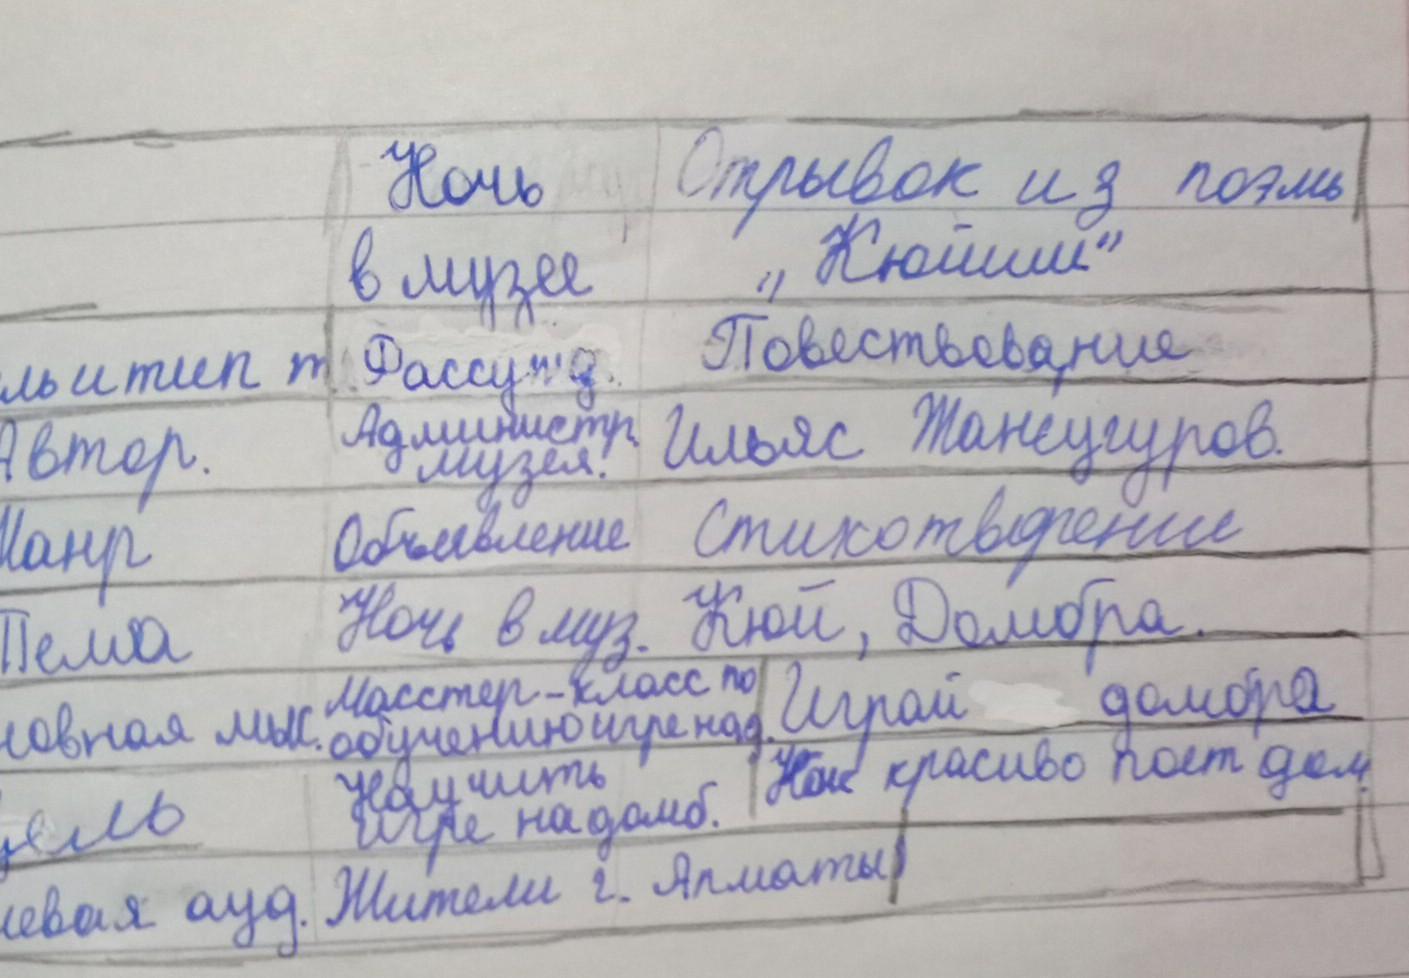 Ночь Отрывок из поэмы
в музее „Кюйши"
ль и тип т Рассужд. Повествование
Автор. Администр. музея. Ильяс Жансугуров.
Жанр Объевление Стихотворение
Тема Ночь в муз. Кюй, Домбра.
новная мыс. Масстер-класс по обучению игре на д. Играй домбра
цель Научить игре на домб. Как красиво поет дом.
левая ауд. Жители г. Алматы